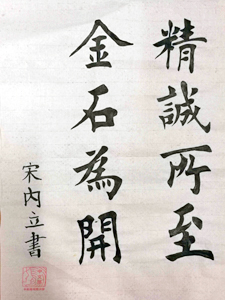 精誠所至
金石為開
宋內立書